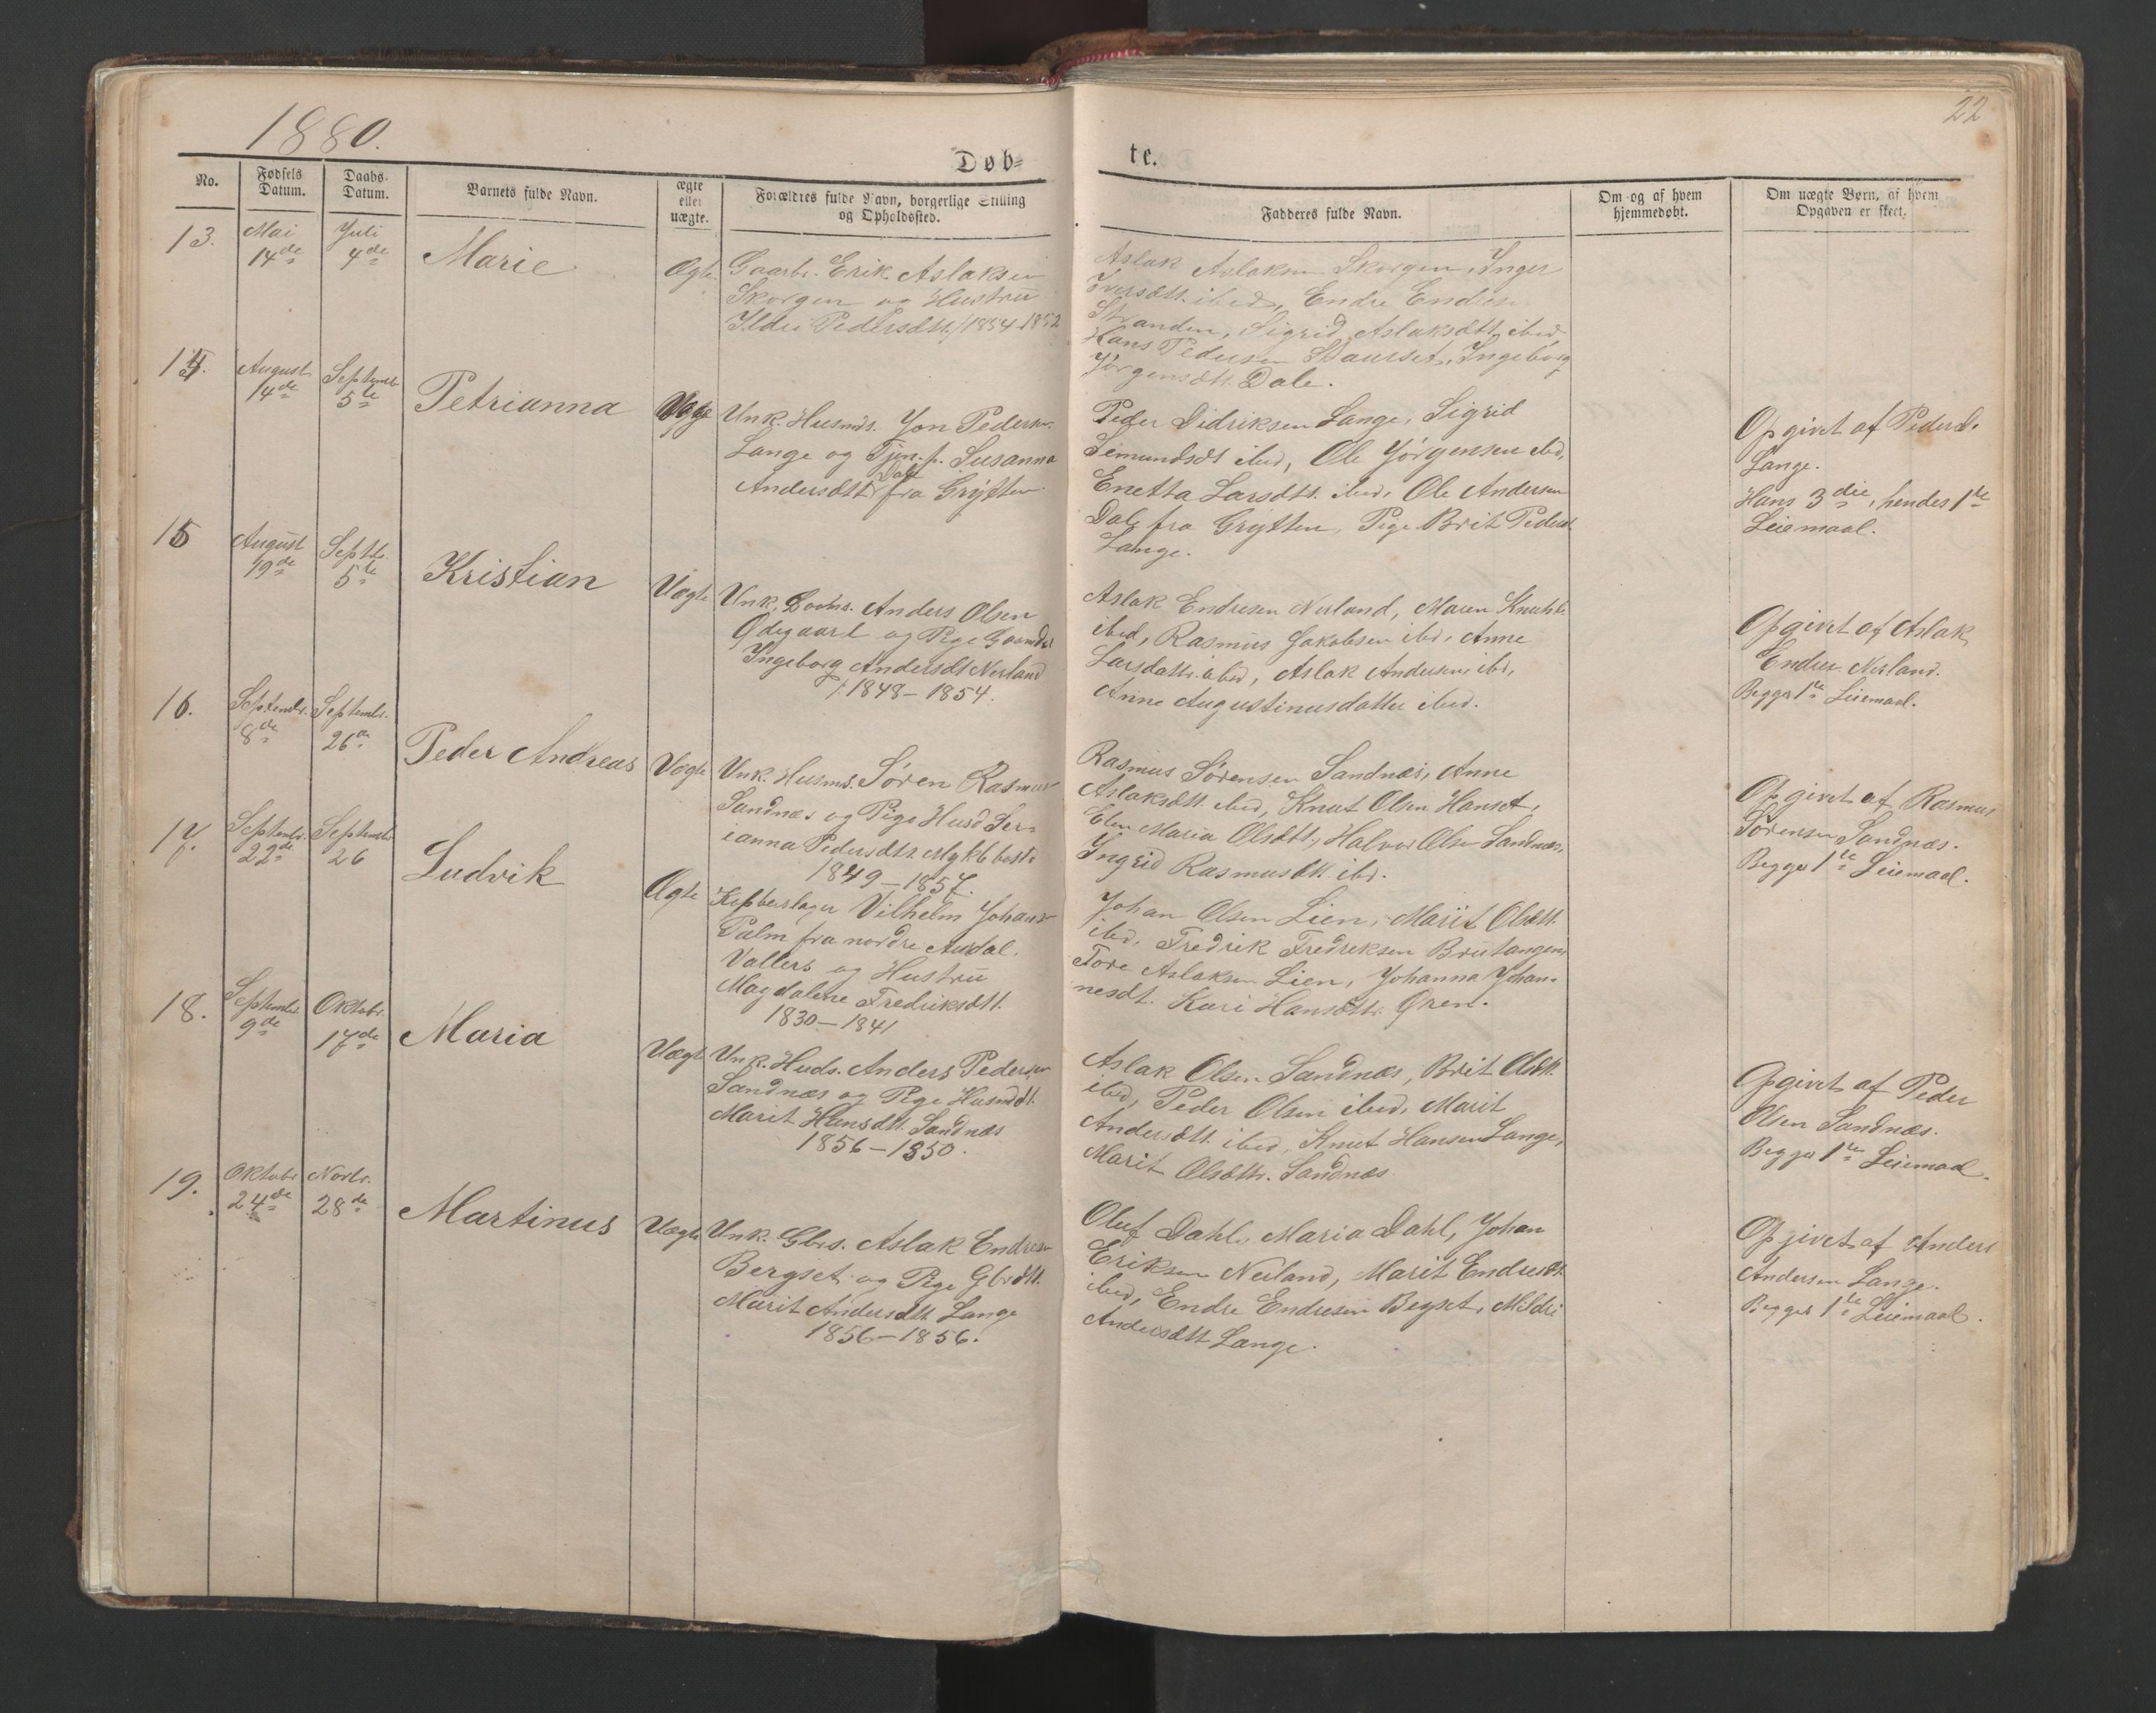 1880.
22
Døb-
te.
No.
Fødsels Datum.
Daabs-Datum.
Barnets fulde Navn.
ægte eller uægte.
Forældres fulde Navn, borgerlige Stilling
og Opholdssted.
Fadderes fulde Navn.
Om og af hvem
hjemmedøbt.
Om uægte Børn, af hvem
Opgaven er skeet.
13.
Mai
14de
Juli
4de
Marie
Ægte
Gaarbr. Erik Aslaksen
Skorgen og Hustru
Ildri Pedersdtt. 1854-1852
Aslak Aslaksen Skorgen, Inger
Iversdtt. ibid, Endre Endresen
Stranden, Sigrid Aslaksdtt. ibid,
Hans Pedersen Staurset, Ingeborg
Jørgensdtt. Dale.
14.
August
14de
Septemb
5te
Petrianna
Uægte
Unk. Husmds. Jon Peders.
Lange og Tjen.p. Susanna
Andersdtt. Dale fra Grytten
Peder Didriksen Lange, Sigrid
Semundsdt ibid, Ole Jørgensen ibid,
Enetta Larsdtt. ibid, Ole Andersen
Dale fra Grytten, Pige Brit Pedersd
Lange.
Opgivet af Peder d.
Lange.
Hans 3die, hendes 1te
Leiemaal.
15
August
19de
Septb.
5te
Kristian
Uægte
Unk. Anders Olsen
Ødegaard og Pige Gaarmdsd
Ingeborg Andersdt Nerland
1848 - 1854.
Aslak Endresen Nerland, Maren Knutsd.
ibid, Rasmus Jakobsen ibd, Anne
Larsdatter ibid, Aslak Andersen ibd,
Anne Augustinusdatter ibid.
Opgivet af Aslak
Endres. Nerland.
Begges 1te Leiemaal.
16.
Septembr.
8de
Septembr.
26de
Peder Andreas
Uægte
Unk. Husms. Søren Rasmus-
Sandnæs og Pige Husd Ser-
ianna Pedersdtt. Myklebost
1849 - 1857.
Rasmus Sørensen Sandnæs, Anne
Aslaksdtt. ibid, Knut Olsen Hanset,
Elen Maria Olsdtt., Halvor Olsen Sandnæs,
Ingrid Rasmusdtt ibd.
Opgivet af Rasmus
Sørensen Sandnæs.
Begges 1te Leiemaal.
17.
Septembr.
22de
Septembr
26
Ludvik
Ægte
Kobberslager Vilhelm Johans-
Palm fra nordre Aurdal.
Vallers og Hustru
Magdalene Fredriksdtt.
1830 - 1841
Johan Olsen Lien, Marit Olsdtt.
ibd, Fredrik Fredriksen Brutangen,
Tore Aslaksen Lien, Johanna Johan-
nesdt. Kari Hansdtt. Gren.
18.
Septembr.
9de
Oktobr.
17de
Maria
Uægte
Unk. Huds. Anders Pedersen
Sandnæs og Pige Husmdt.
Marit Hansdtt. Sandnæs
1856 - 1850.
Aslak Olsen Sandnæs, Brit Olsdtt.
ibid, Peder Olsen ibid, Marit
Andersdtt. ibid, Knut Hansen Lange,
Marit Olsdtt. Sandnæs
Opgivet af Peder
Olsen Sandnæs.
Begges 1te Leiemaal.
19.
Oktobr
24de
Novbr.
28de
Martinus
Uægte
Unk. Gbrs. Aslak Endresen
Bergset og Pige Gbrdtt.
Marit Andersdtt. Lange
1856 - 1856.
Oluf Dahl, Maria Dahl, Johan
Eriksen Nerland, Marit Endresdtt
ibid, Endre Endresen Begset,
Andersdtt Lange.
Opgivet af Anders
Andersen Lange.
Begges 1te Leiemaal.